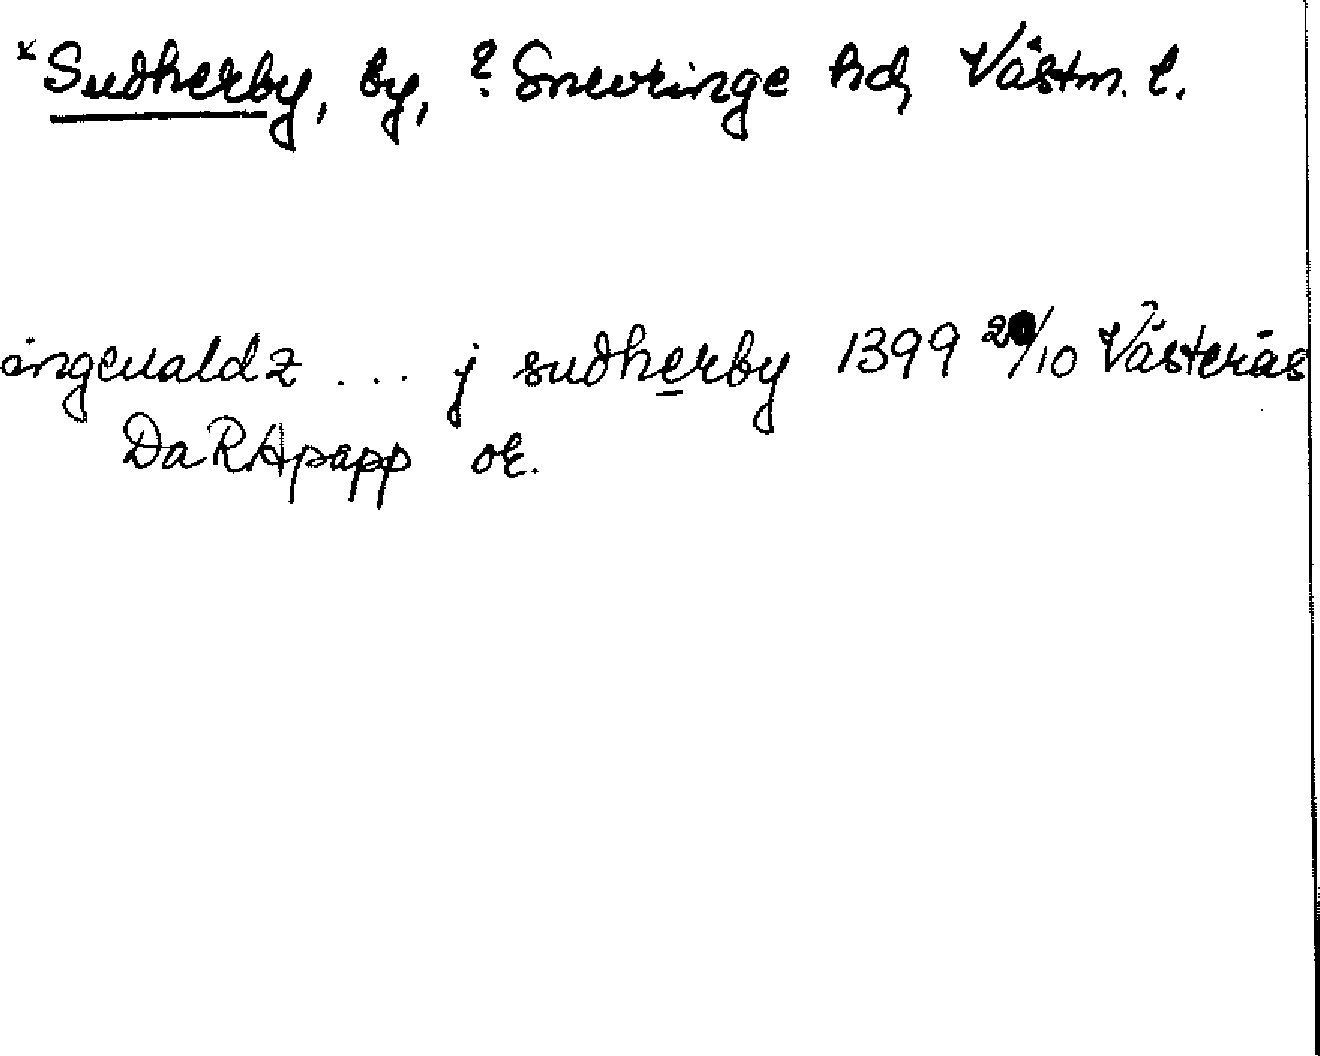 *Sudherby, by, ? Snevringe hd, Västm. l.
ingeualdz ... j sudherby 1399 /10 Västerås
DaRApapp or.